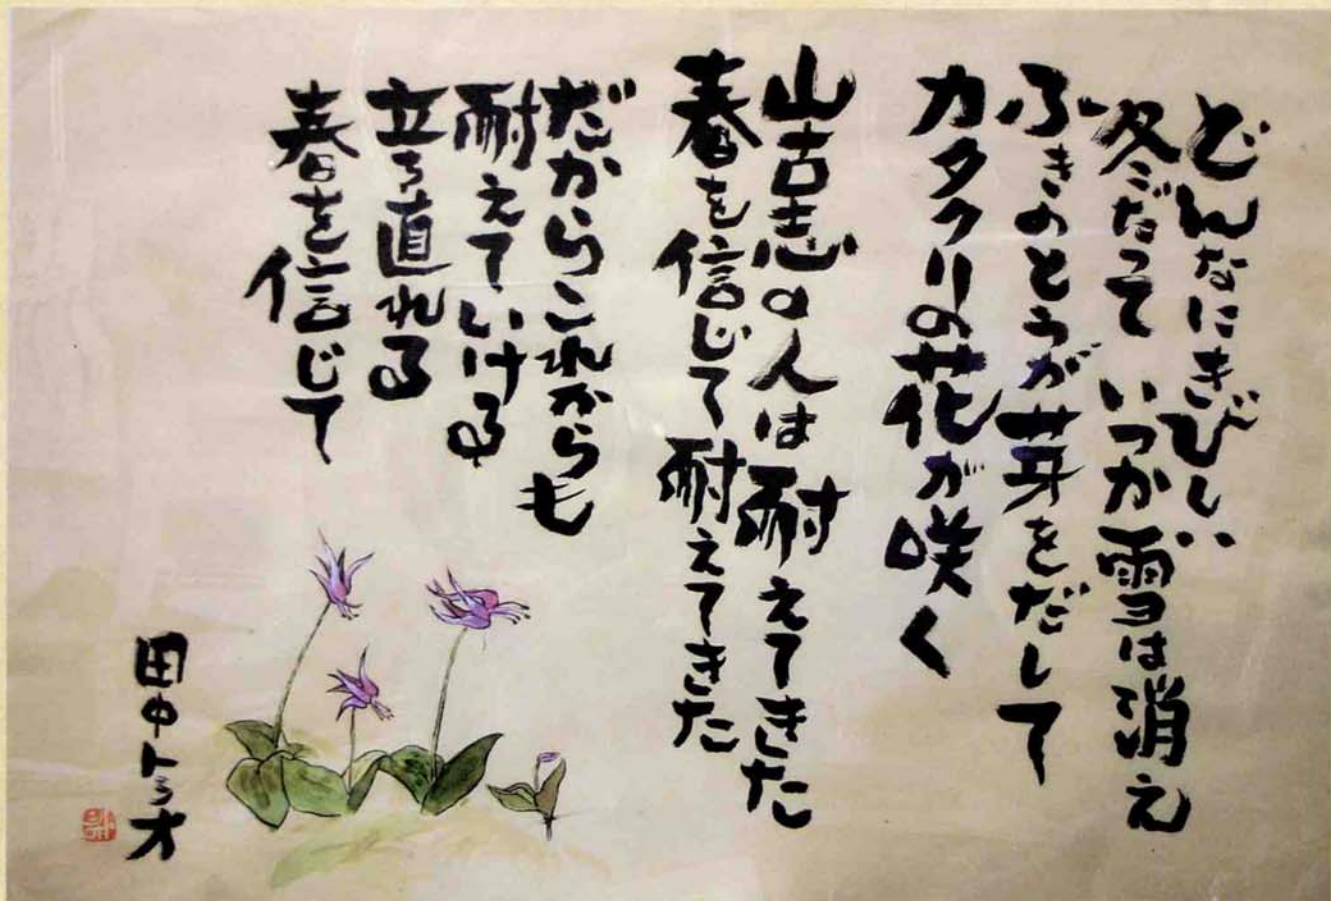 どんなにきびしい
冬だって いつか雪は消え
ふきのとうが芽をだして
カタクリの花が咲く
山古志の人は耐えてきた
春を信じて耐えてきた
だからこれからも
耐えていける
立ち直れる
春を信じて
田中トシオ